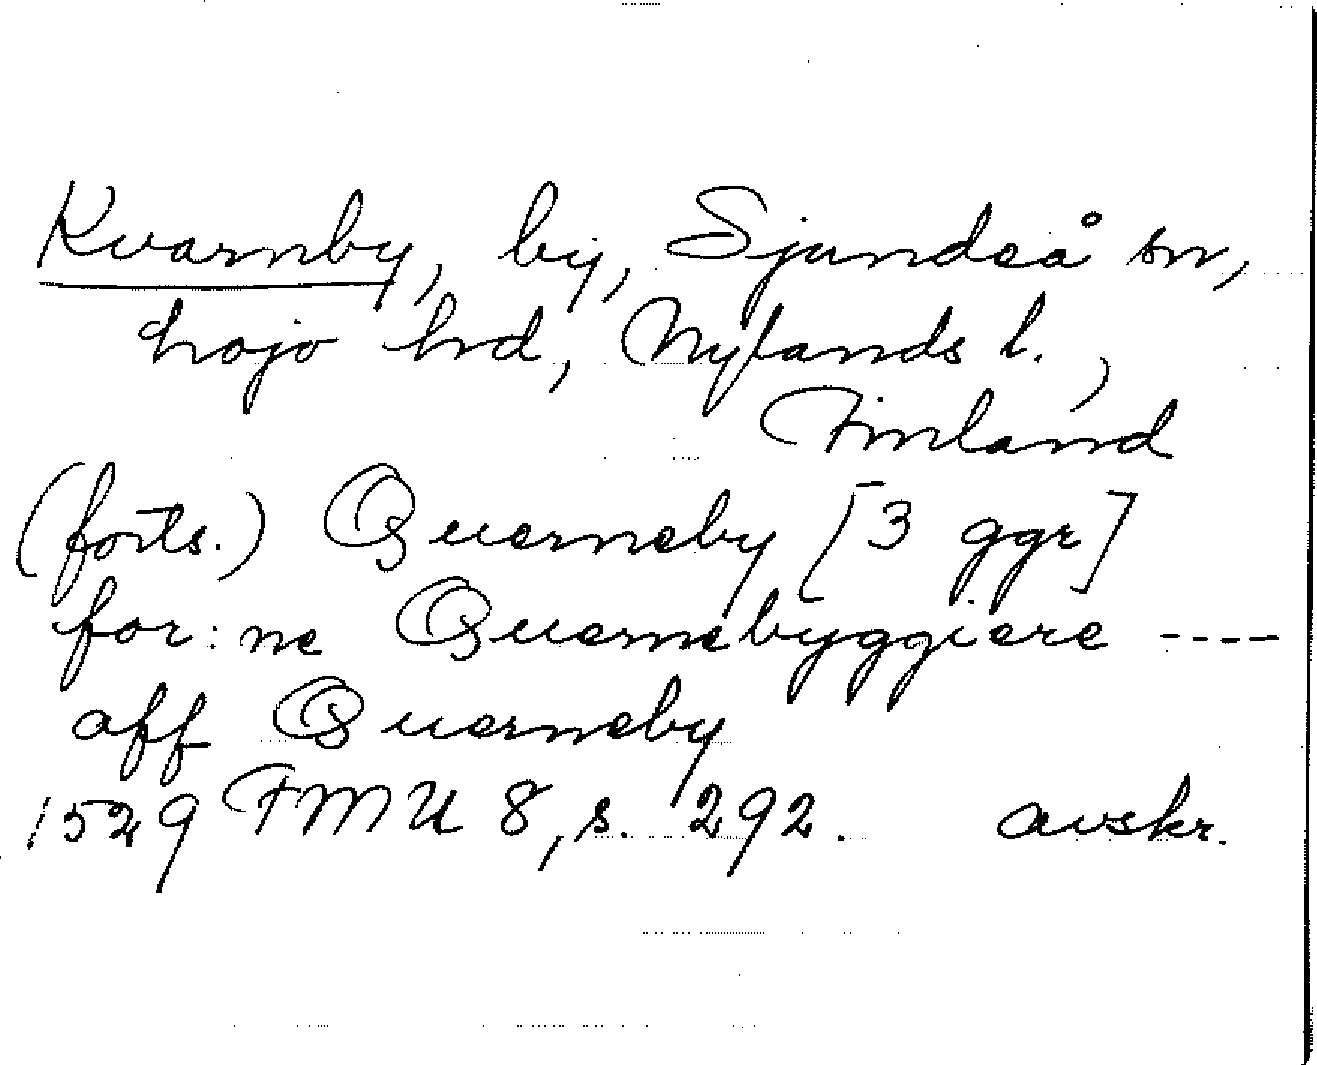 Kvarnby, by, Sjundeå sn,
Lojo hrd, Nylands l.,
Finland
(forts.) Querneby [3 ggr]
for:ne Quernebyggiere ----
aff Querneby
1529 FMU 8, s. 292. avskr.